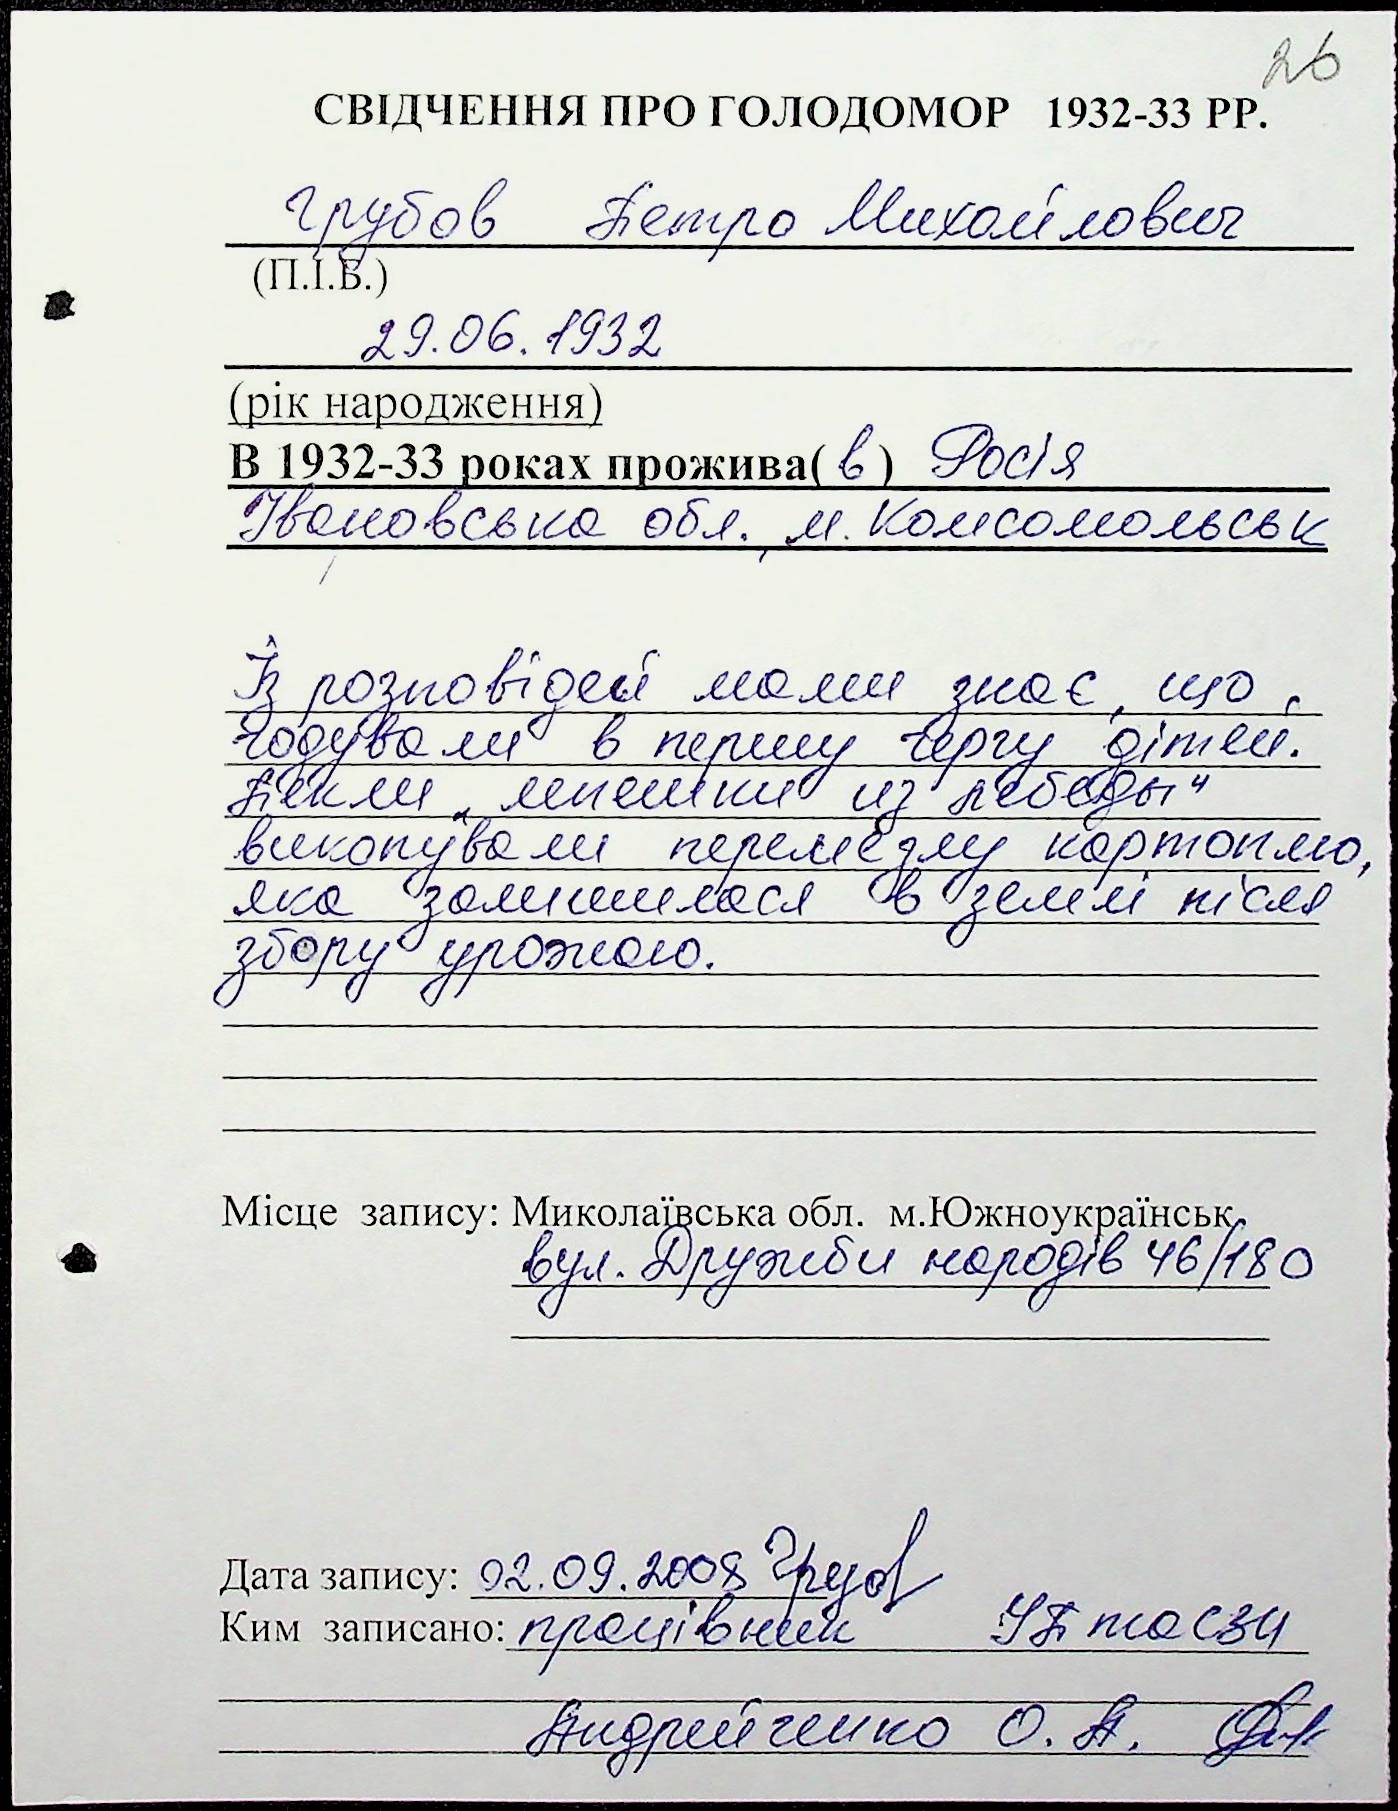 26
СВІДЧЕННЯ ПРО ГОЛОДОМОР 1932-33 РР.
Грубов Петро Михайлович
(П.І.Б.)
29.06.1932
(рік народження)
В 1932-33 роках прожива(в) Росія
Івановська обл., м. Комсомольськ
Із розповідей мами знає, що
годували в першу чергу дітей.
Пекли „лепешки из лебеды"
викопували перемерзлу картоплю,
яка залишилася в землі після
збору урожаю.
Місце запису: Миколаївська обл. м.Южноукраїнськ
вул. Дружби народів 46/180
Дата запису: 02.09.2008 Грубов
Ким записано: працівник УП та СЗН
Андрейченко О. А.